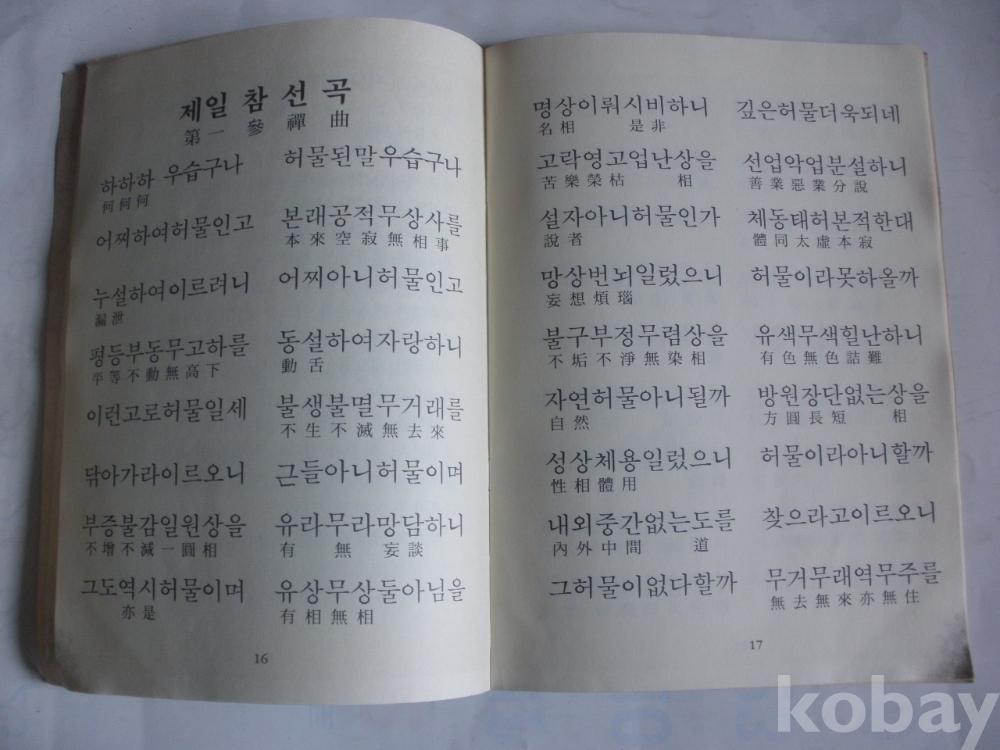 제일 참 선 곡
第 一 參 禪 曲
하하하 우습구나 허물된말우습구나
何何何
어찌하여허물인고 본래공적무상사를
本來空寂無相事
누설하여이르러니 어찌아니허물인고
漏泄
평등부동무고하를 동설하여자랑하니
平等不動無高下 動舌
이런고로허물일세 불생불멸무거래를
不生不滅無去來
닦아가라이르오니 근들아니허물이며
부증불감일원상을 유라무라망담하니
不增不減一圓相 有 無 妄談
그도역시허물이며 유상무상둘아님을
亦是 有相無相
16
명상이뤄시비하니 깊은허물더욱되네
名相 是非
고락영고업난상을 선업악업분설하니
苦樂榮枯 相 善業惡業分說
설자아니허물인가 체동태허본적한대
說者 體同太虛本寂
망상번뇌일렀으니 허물이라못하올까
妄想煩瑙
불구부정무렴상을 유색무색힐난하니
不垢不淨無染相 有色無色詰難
자연허물아니될까 방원장단없는상을
自然 方圓長短 相
성상체용일렀으니 허물이라아니할까
性相體用
내외중간없는도를 찾으라고이르오니
內外中間 道
그허물이없다할까 무거무래역무주를
無去無來亦無住
17
kobay